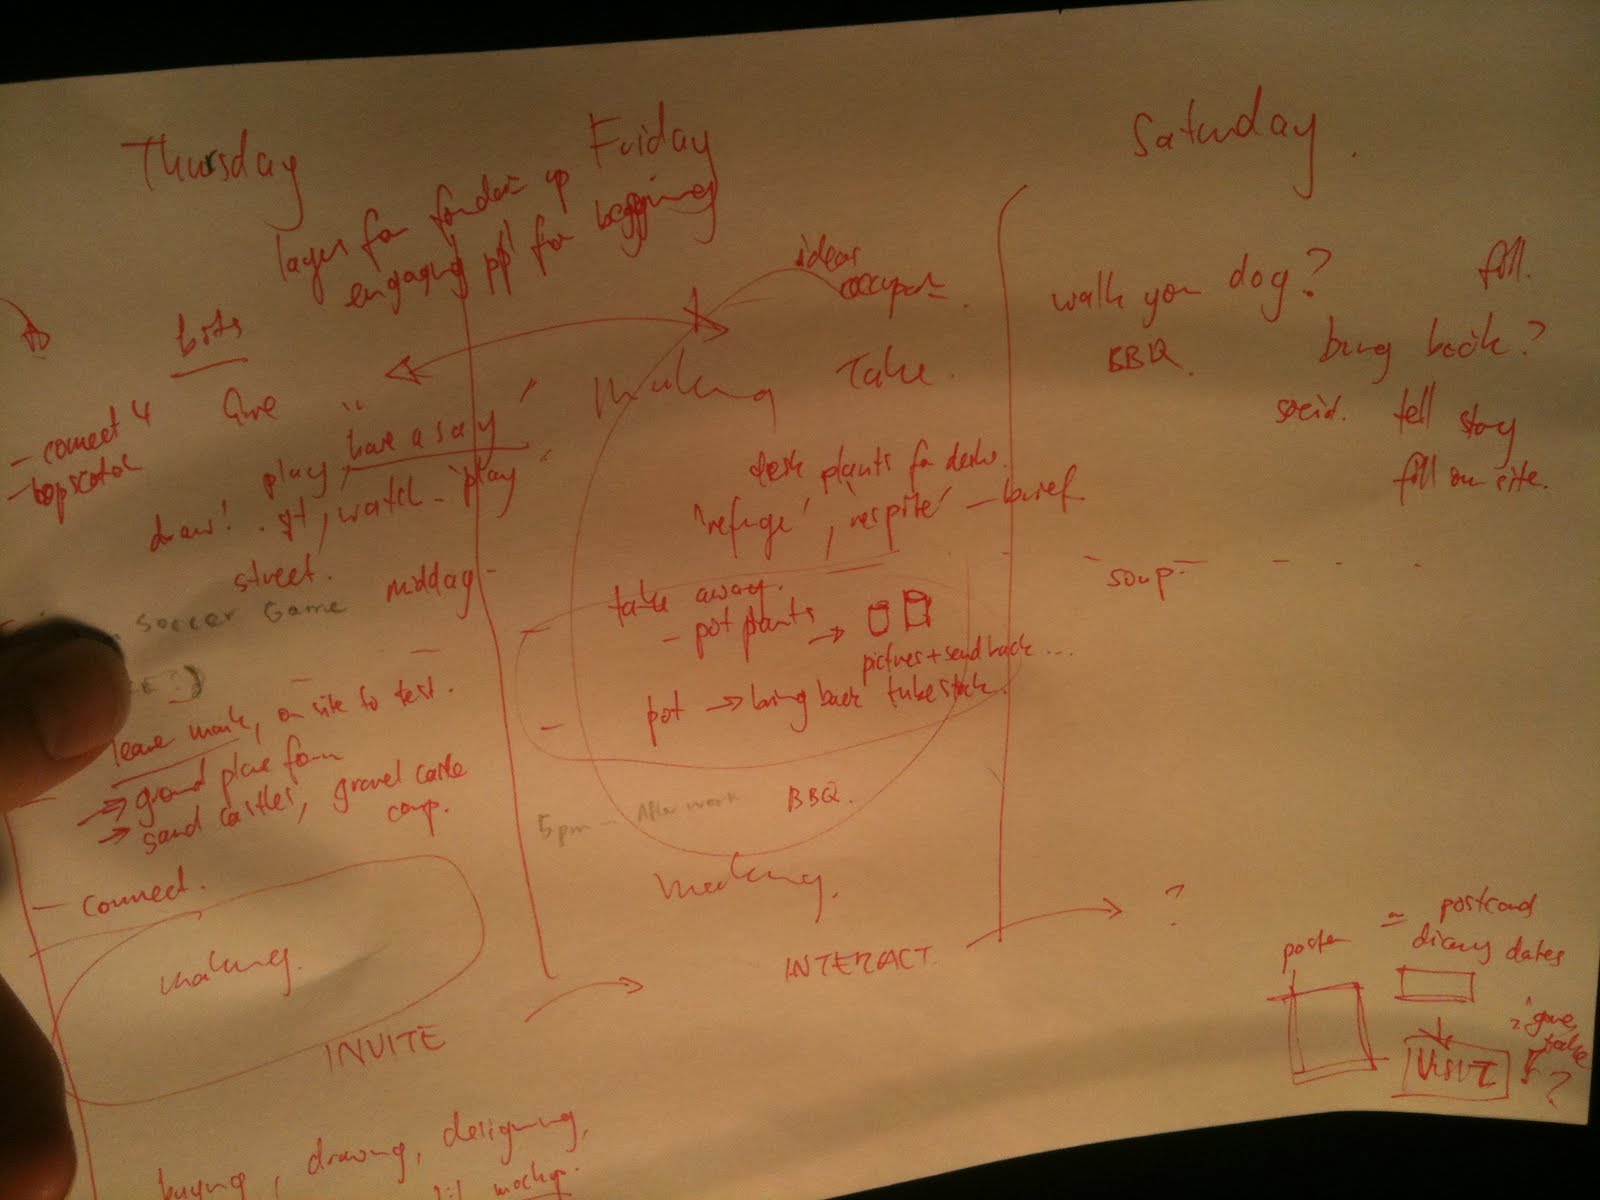 Thursday
Friday
Saturday.
layer for up
engaging ppl for begging
ideas
bits
Give
- connect 4
"have a say"
play,
draw! . watch - play
street.
midday
Soccer Game
leave mark, on site to test.
→ ground plane form
→ sand castles, gravel castle
comp.
- connect.
making.
INVITE
buying, drawing, designing,
mockup.
making
Take.
desk plants for desks.
'refuge', 'respite' - brief
take away.
- pot plants →
pictures + send back ...
pot → bring back tube stock.
5pm - After work
BBQ.
making.
INTERACT.
walk your dog?
BBQ.
fill.
bring back?
tell story
fill on site.
soup
?
poster
= postcard
diary dates
VISIT
give,
take
?